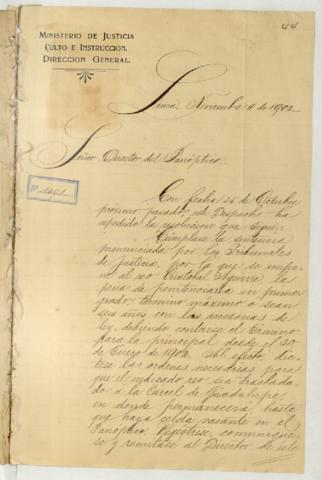 44
MINISTERIO DE JUSTICIA
CULTO E INSTRUCCION.
DIRECCION GENERAL.
Lima, Noviembre 4 de 1902
Señor Director del Panóptico.
Nº
Con fecha 25 de Octubre
próximo pasado, este Despacho ha
expedido la resolución que sigue:
Cúmplase la sentencia
pronunciada por los Tribunales
de Justicia, por la que se impo
ne al reo Cristobal la
pena de penitenciaria en primer
grado, término máximo o sean
seis años con las accesorias de
ley, debiendo contarse el término
para la principal desde el 30
de Enero de 1902. Al efecto, dic
tese las ordenes necesarias para
que el indicado reo sea traslada
do a la Carcel de Guadalupe,
en donde permanecerá hasta
que haya celda vacante en el
Panóptico. Regístrese, comuníque
se y remítase al Director de este